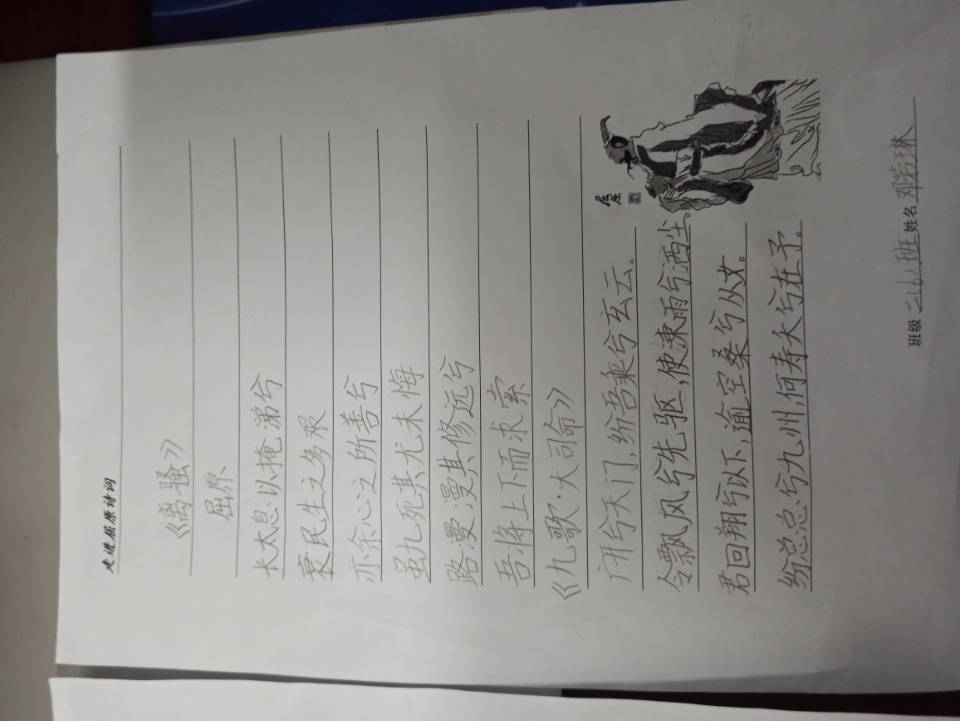 走进屈原诗词
《离骚》
屈原
长太息以掩涕兮
哀民生之多艰
亦余心之所善兮
虽九死其尤未悔
路漫漫其修远兮
吾将上下而求索
《九歌·大司命》
广开兮天门,纷吾乘兮玄云。
令飘风兮先驱,使涷雨兮洒尘。
君回翔兮以下,逾空桑兮从女。
纷总总兮九州,何寿夭兮在予。
屈原
班级 二(6)班 姓名 邓若琳